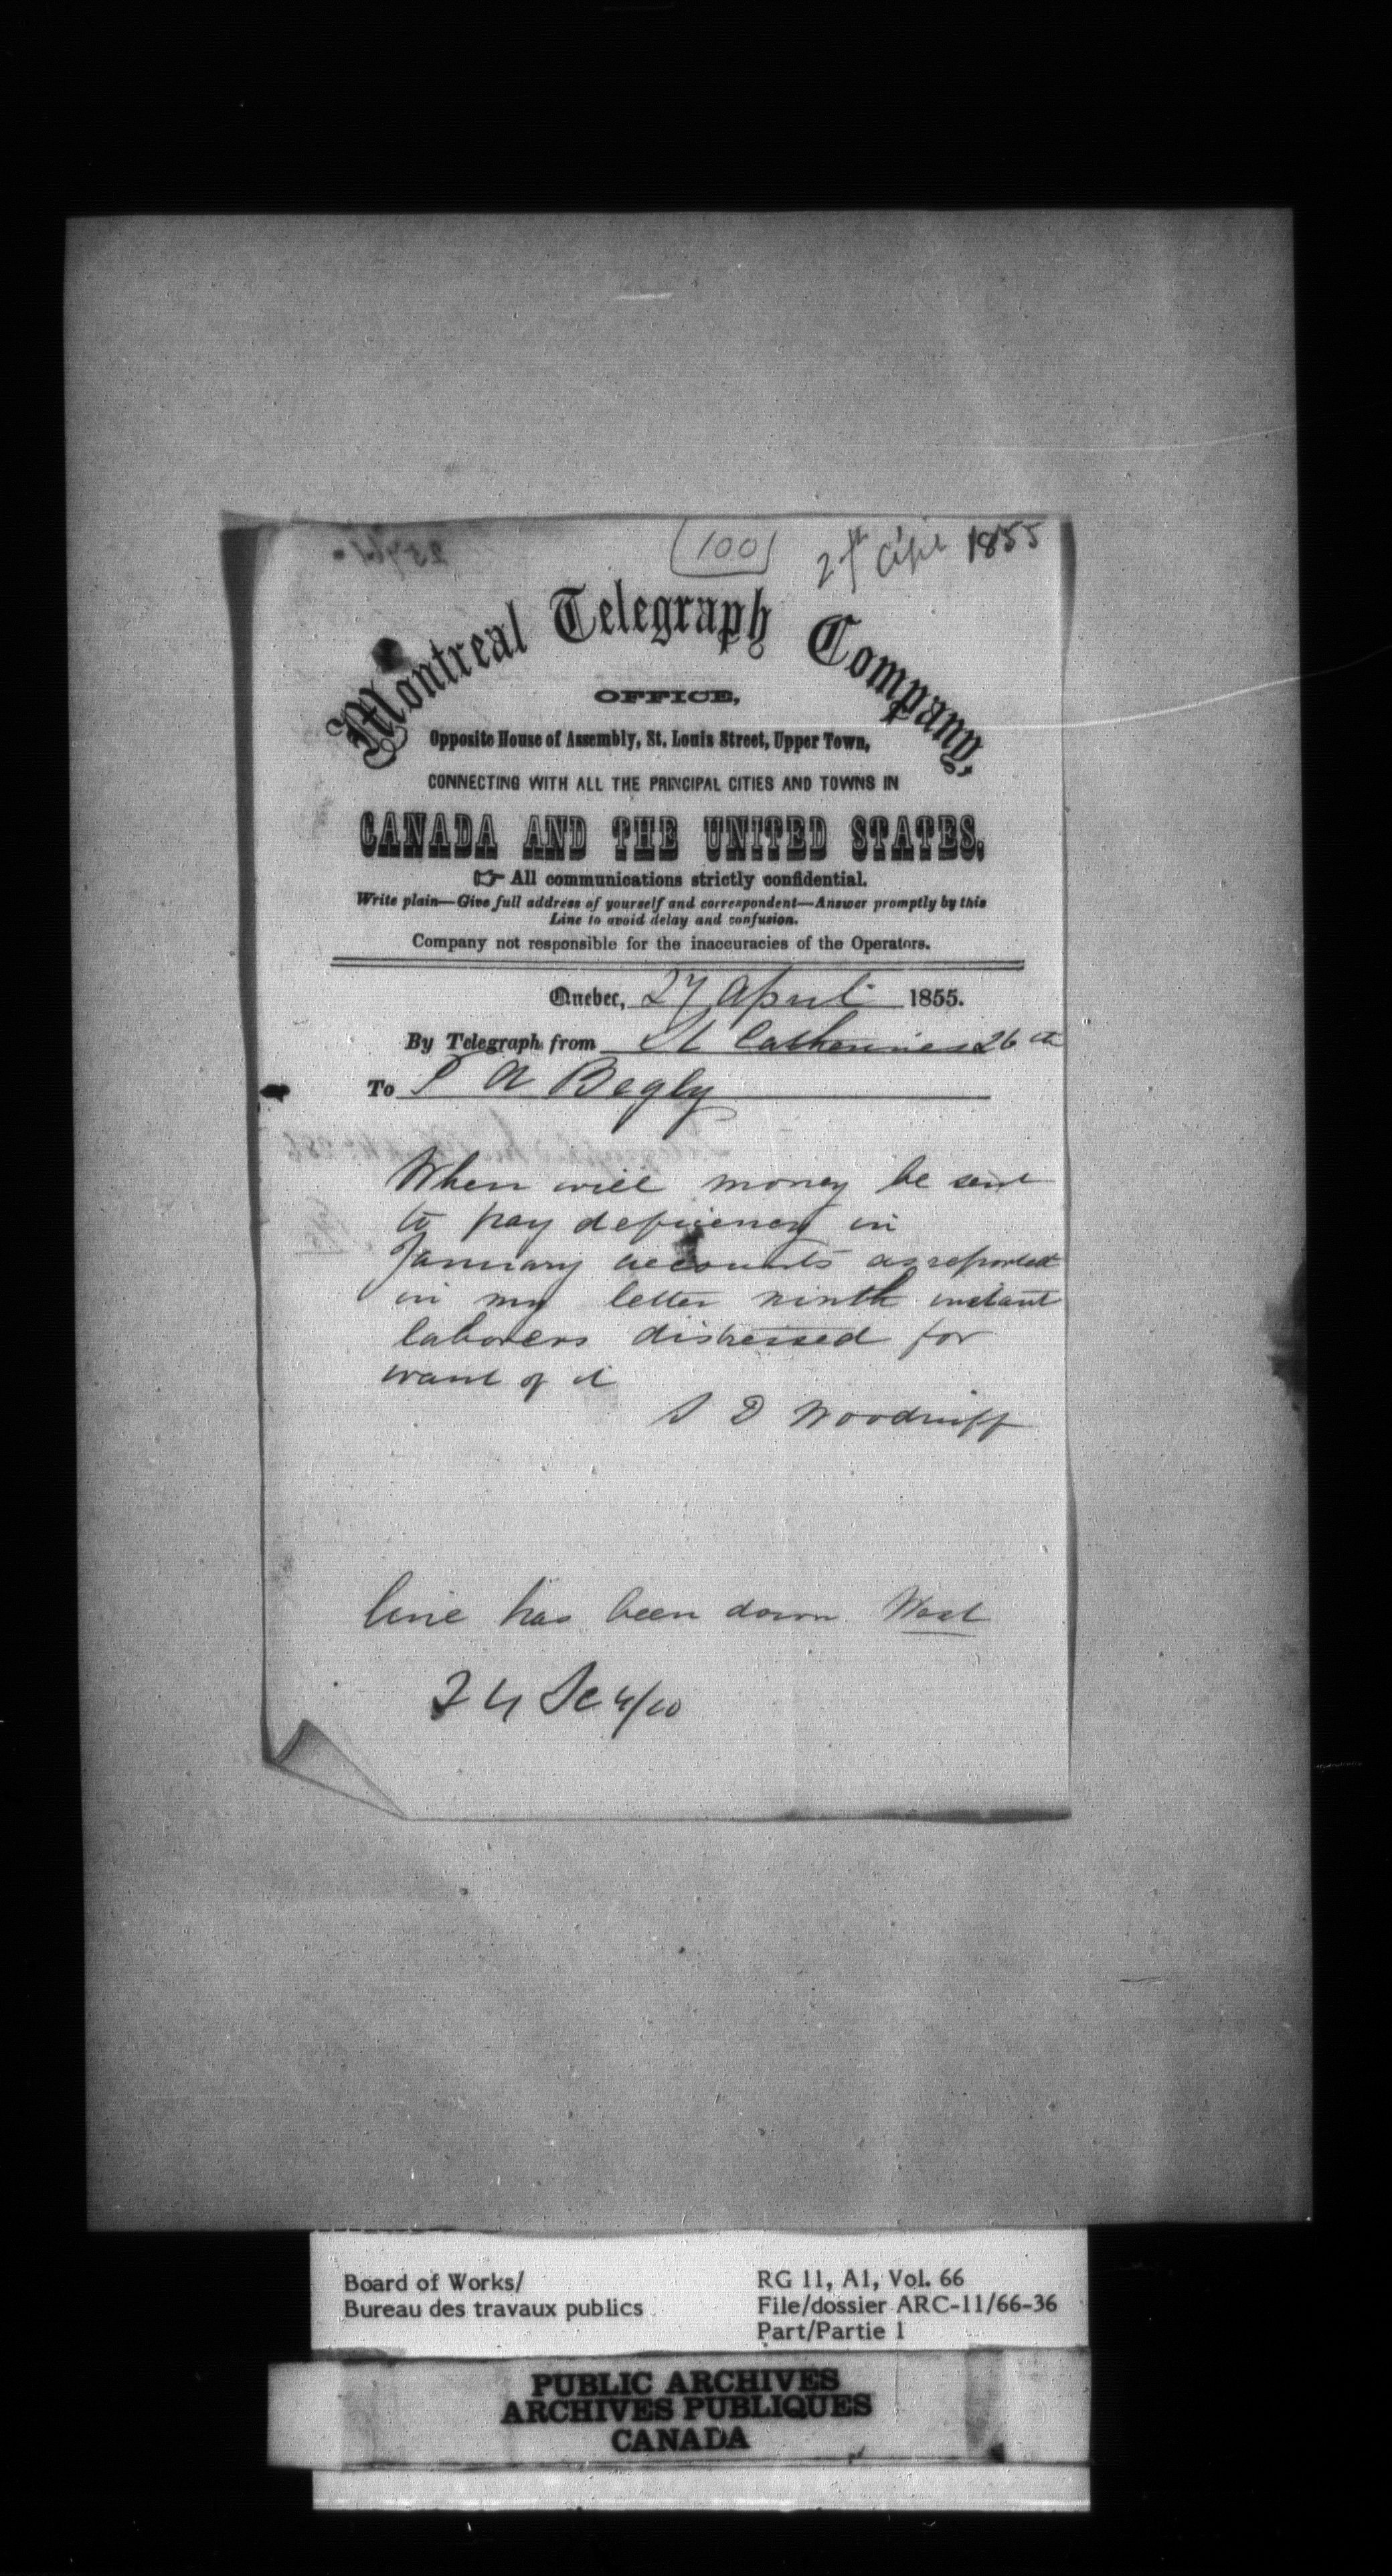 100
27th April 1855
Montreal Telegraph Company,
OFFICE,
Opposite House of Assembly, St. Louis Street, Upper Town,
CONNECTING WITH ALL THE PRINCIPAL CITIES AND TOWNS IN
CANADA AND THE UNITED STATES.
☞ All communications strictly confidential.
Write plain—Give full address of yourself and correspondent—Answer promptly by this
Line to avoid delay and confusion.
Company not responsible for the inaccuracies of the Operators.
Quebec, 27 April 1855.
By Telegraph from St Catherines 26th
To A Begly
When will money be sent
to pay deficiency in
January accounts as reported
in my letter ninth instant
laborers distressed for
want of it
S D Woodruff
line has been down West
24
Board of Works/
Bureau des travaux publics
RG 11, A1, Vol. 66
File/dossier ARC-11/66-36
Part/Partie 1
PUBLIC ARCHIVES
ARCHIVES PUBLIQUES
CANADA